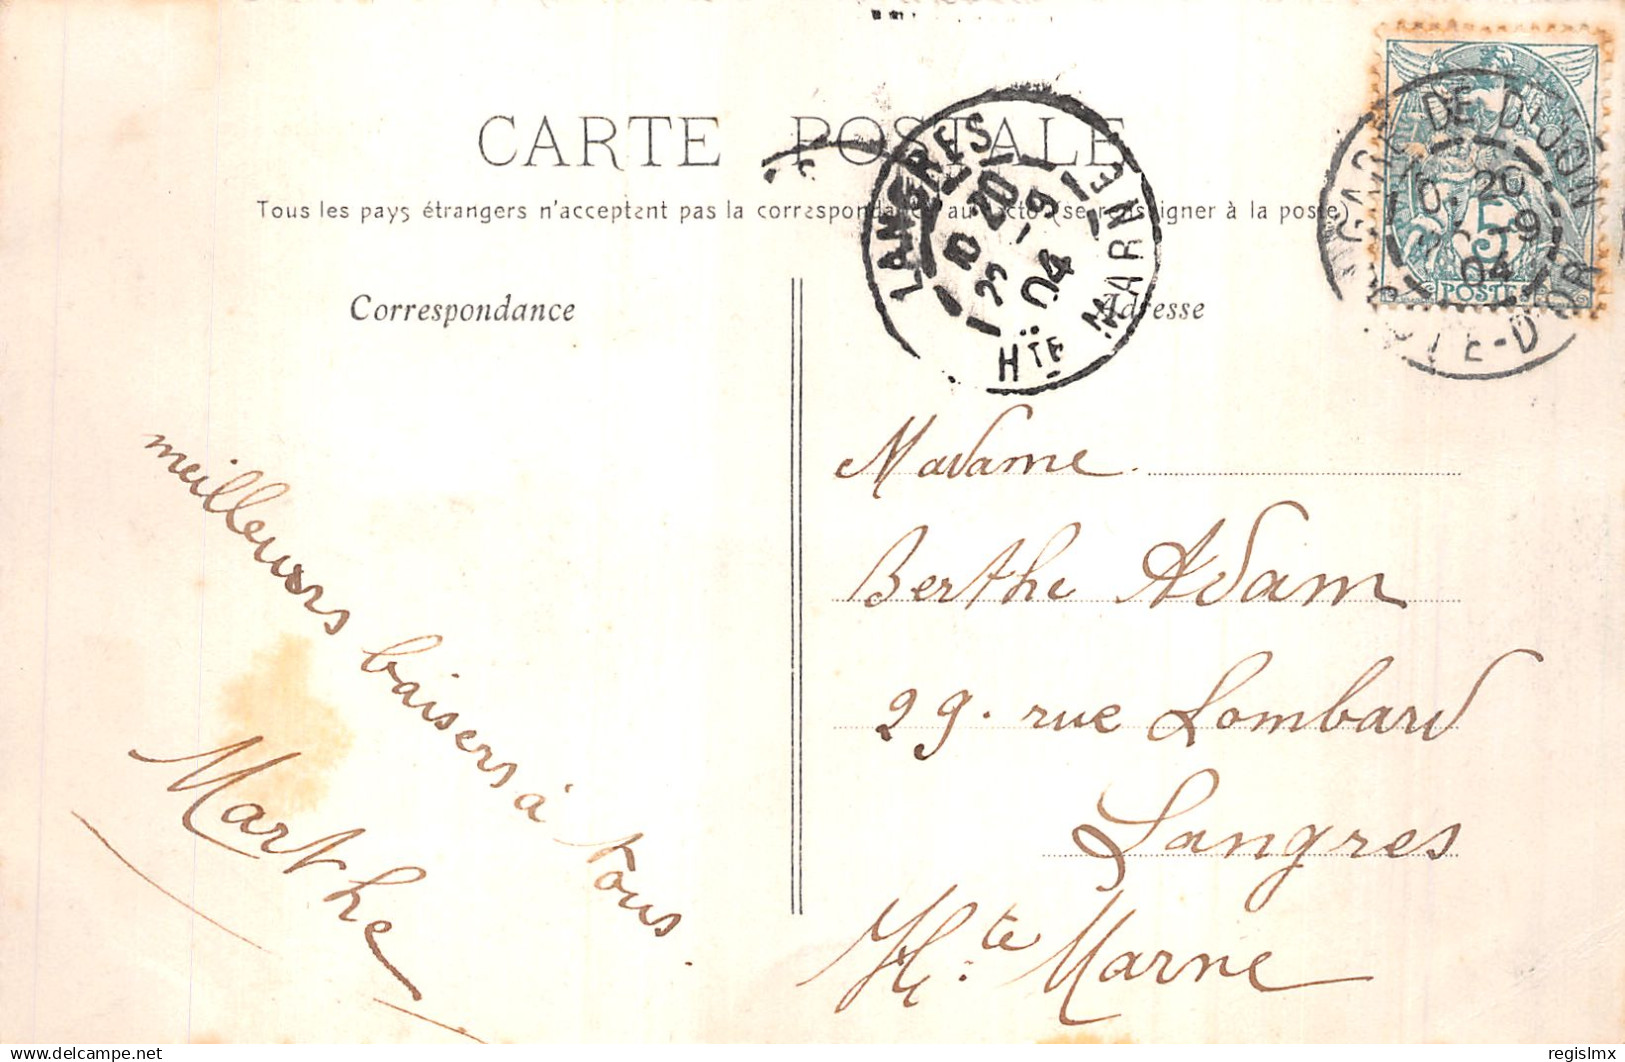 CARTE POSTALE
Tous les pays étrangers n'acceptent pas la correspondance au recto (se renseigner à la poste)
Correspondance
Adresse
LANGRES
Hte MARNE
10 20
22 - 9
04
GARE DE DIJON
COTE-D'OR
20
04
5
POSTES
meilleurs baisers à tous.
Marthe
Madame
Berthe Adam
29. rue Lombard
Langres
Hte Marne
delcampe.net
regislmx